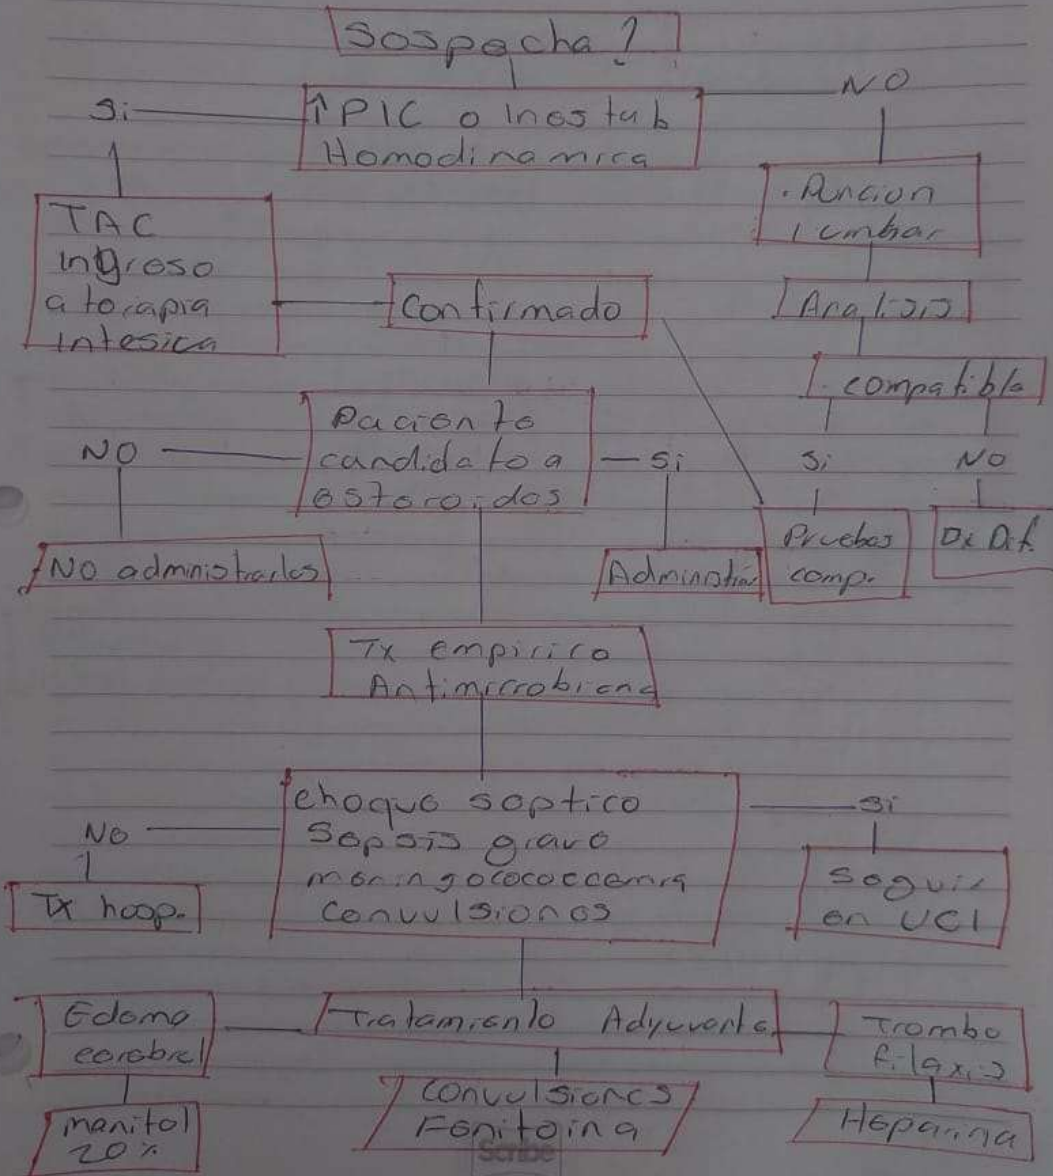 Sospecha?
Si
↑PIC o Inestab
Hemodinamica
NO
TAC
ingreso
a terapia
intesica
Confirmado
. Puncion
lumbar
Analisis
. compatible
NO
Paciente
candidato a
esteroides
Si
Si
NO
No administrarlos
Administrar
Pruebas
comp.
Dx Dif.
Tx empirico
Antimicrobiano
No
choque septico
Sepsis grave
meningococcemia
Convulsiones
Si
Tx hosp.
Seguir
en UCI
Edema
cerebral
Tratamiento Adyuvante
Trombo
filaxis
manitol
20%
Convulsiones
Fenitoina
Heparina
Scribe